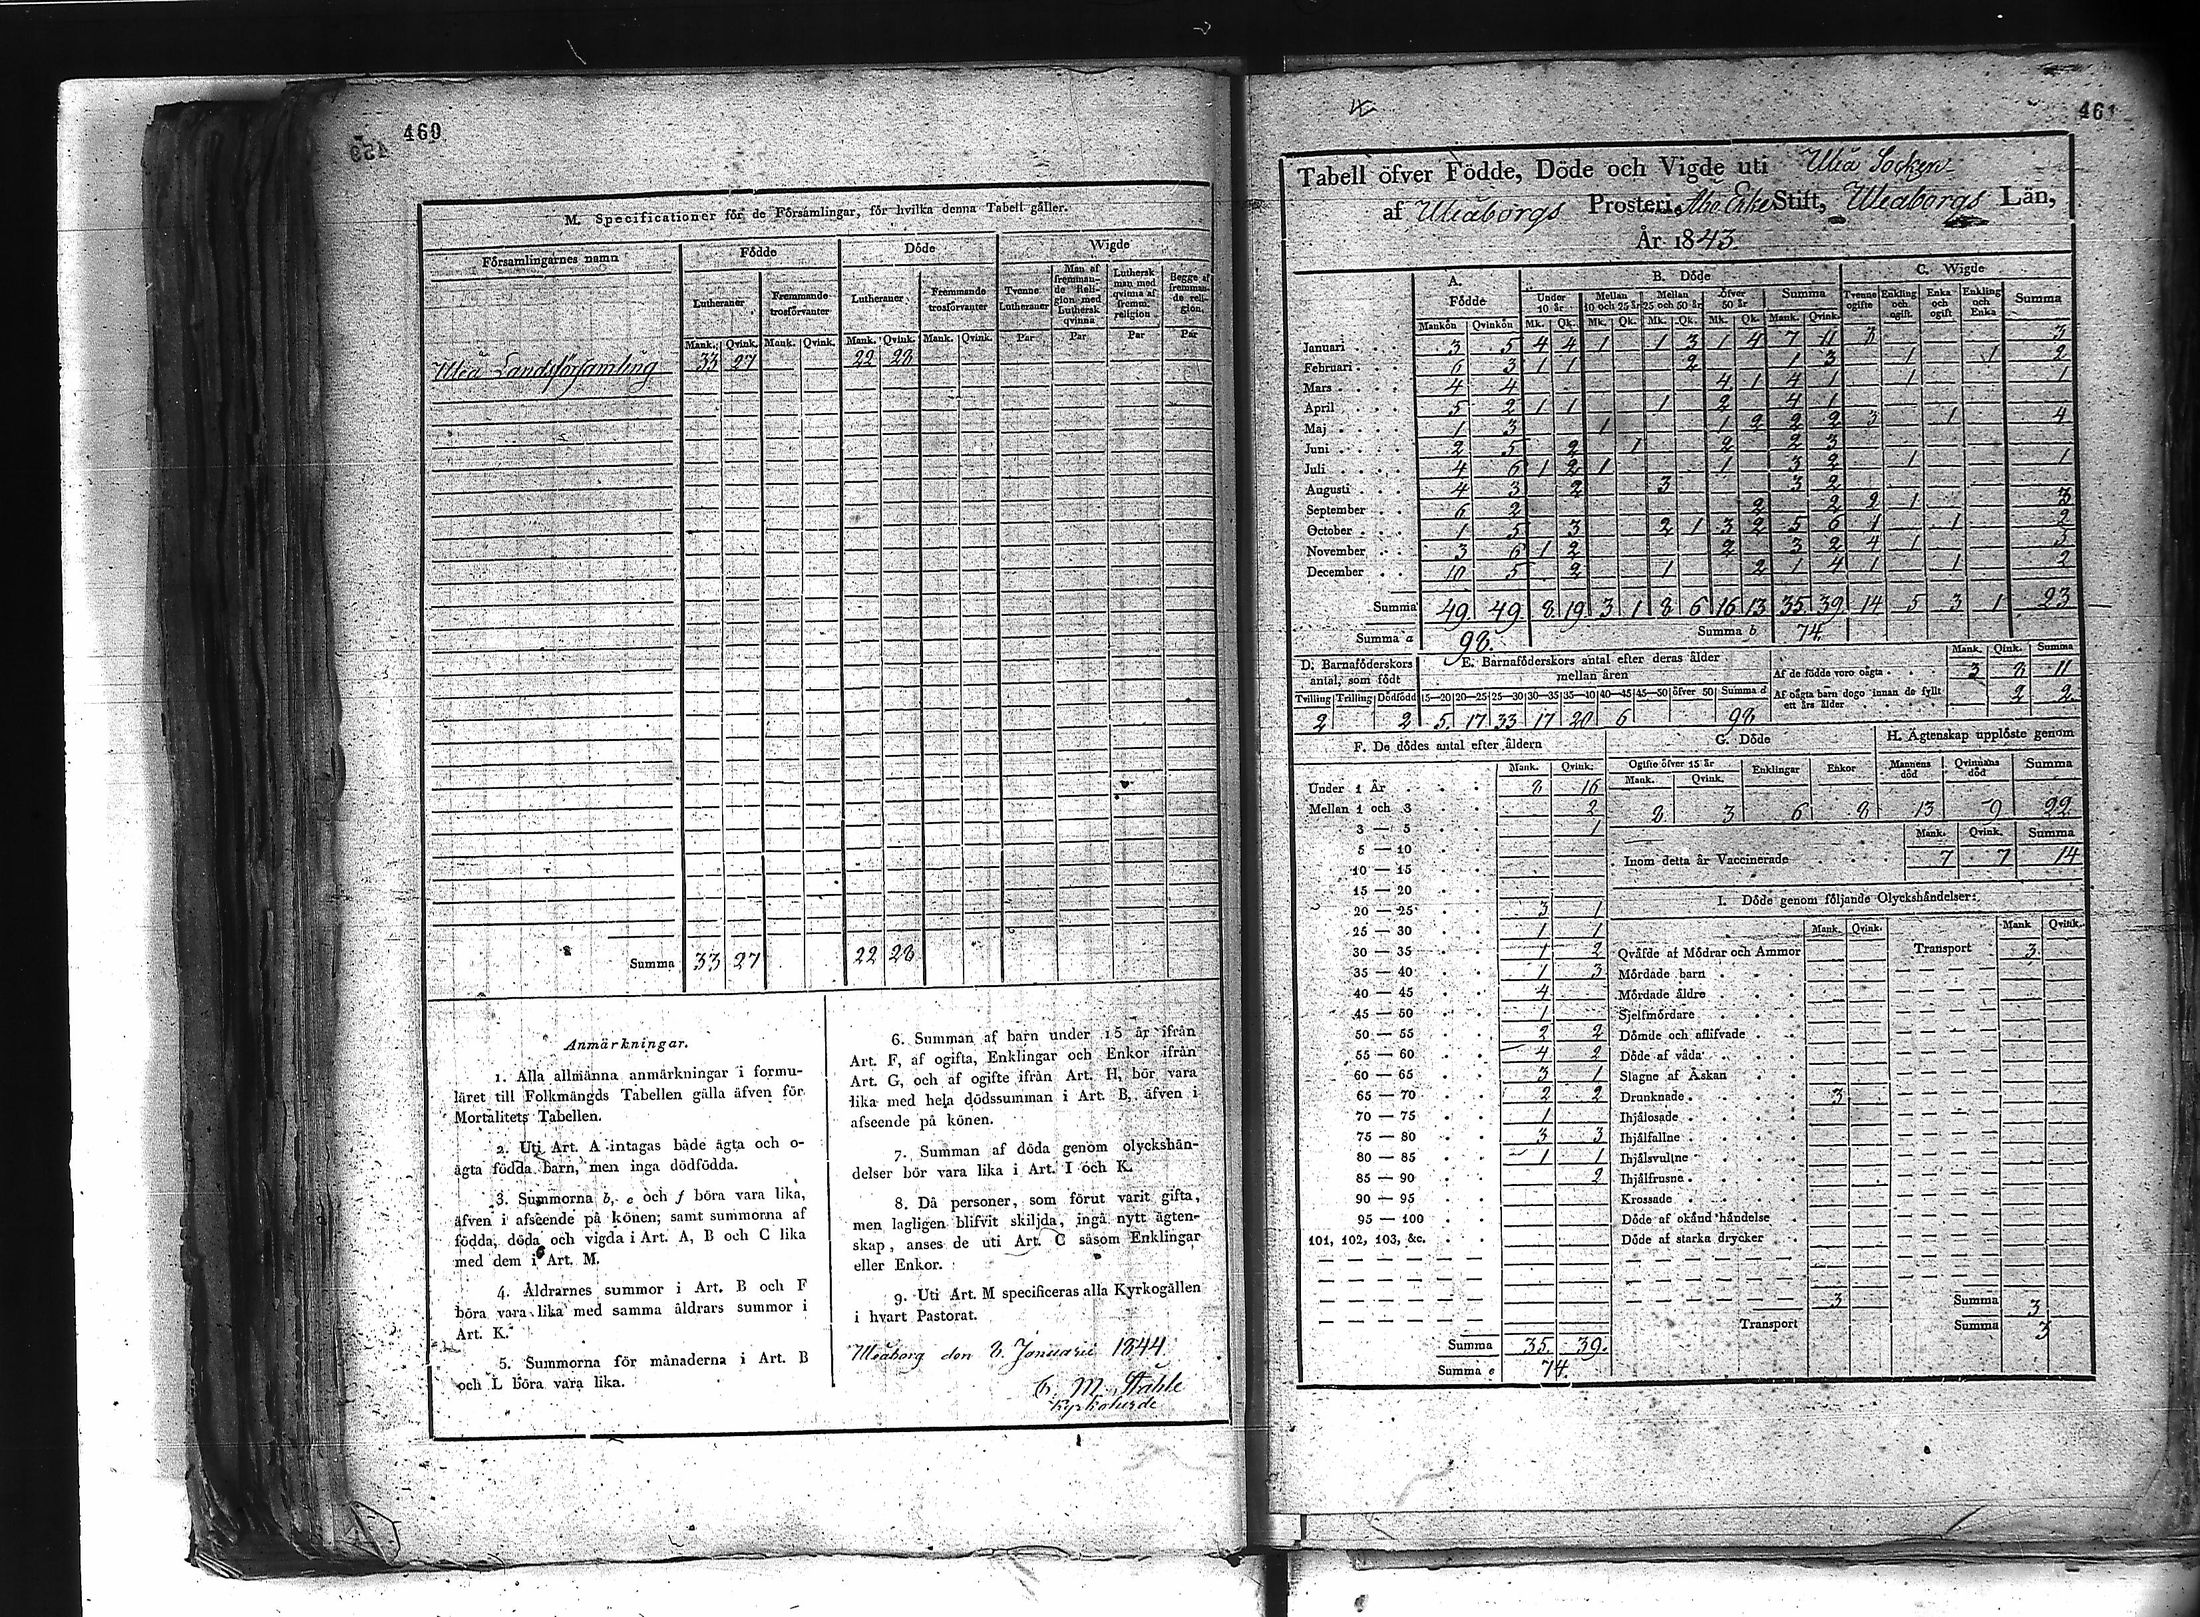 460
M. Specificationer för de Församlingar, för hvilka denna Tabell gäller.
Församlingarnes namn Födde Döde Wigde
Lutheraner Fremmande trosförvanter Lutheraner Fremmande trosförvanter Tvenne Lutheraner Man af fremmande Religion med Luthersk qvinna Luthersk man med qvinna af fremm. religion Begge af fremmande religion.
Mank. Qvink. Mank. Qvink. Mank. Qvink. Mank. Qvink. Par Par Par Par
Uleå Landsförsamling 33 27 22 28
Summa 33 27 22 28
Anmärkningar.
1. Alla allmänna anmärkningar i formu-
läret till Folkmängds Tabellen gälla äfven för
Mortalitets Tabellen.
2. Uti Art. A intagas både ägta och o-
ägta födda barn, men inga dödfödda.
3. Summorna b, e och f böra vara lika,
äfven i afseende på könen; samt summorna af
födda, döda och vigda i Art. A, B och C lika
med dem i Art. M.
4. Åldrarnes summor i Art. B och F
böra vara lika med samma åldrars summor i
Art. K.
5. Summorna för månaderna i Art. B
och L böra vara lika.
6. Summan af barn under 15 år ifrån
Art. F, af ogifta, Enklingar och Enkor ifrån
Art. G, och af ogifte ifrån Art. H, bör vara
lika med hela dödssumman i Art. B, äfven i
afseende på könen.
7. Summan af döda genom olyckshän-
delser bör vara lika i Art. I och K.
8. Då personer, som förut varit gifta,
men lagligen blifvit skiljda, ingå nytt ägten-
skap, anses de uti Art. C såsom Enklingar
eller Enkor.
9. Uti Art. M specificeras alla Kyrkogällen
i hvart Pastorat.
Uleåborg den 8. Januarii 1844.
461
Tabell öfver Födde, Döde och Vigde uti Uleå Socken
af Uleåborgs Prosteri, Åbo Erke Stift, Uleåborgs Län,
År 1843.
A. Födde B. Döde C. Wigde
Under 10 år Mellan 10 och 25 år Mellan 25 och 50 år öfver 50 år Summa Tvenne ogifte Enkling och ogift. Enka och ogift Enkling och Enka Summa
Mankön Qvinkön Mk. Qk. Mk. Qk. Mk. Qk. Mk. Qk. Mank. Qvink.
Januari 3 5 4 4 1 1 3 1 4 7 11 3 3
Februari 6 3 1 1 2 1 3 1 1 2
Mars 4 4 4 1 4 1 1 1
April 5 2 1 1 1 2 4 1
Maj 1 3 1 1 2 2 2 3 1 4
Juni 2 5 2 1 2 2 3
Juli 4 6 1 2 1 1 3 2 1 1
Augusti 4 3 2 3 3 2
September 6 2 2 2 2 1 3
October 1 5 3 2 1 3 2 5 6 1 1 2
November 3 6 1 2 2 3 2 4 1 5
December 10 5 2 1 2 1 4 1 1 2
Summa 49 49 8 19 3 1 8 6 16 13 35 39 14 5 3 1 23
Summa a 98. Summa b 74.
D. Barnaföderskors antal, som födt
Tvilling Trilling Dödfödd
2 2
E. Barnaföderskors antal efter deras ålder mellan åren
15—20 20—25 25—30 30—35 35—40 40—45 45—50 öfver 50 Summa d
5 17 33 17 20 6 98
Mank. Qink. Summa
Af de födde voro oägta 3 8 11
Af oägta barn dogo innan de fyllt ett års ålder 2 2
F. De dödes antal efter åldern
Mank. Qvink.
Under 1 År 8 16
Mellan 1 och 3 2
3 — 5 1
5 — 10
10 — 15
15 — 20
20 — 25 3 1
25 — 30 1 1
30 — 35 1 2
35 — 40 1 3
40 — 45 4
45 — 50 1
50 — 55 2 2
55 — 60 4 2
60 — 65 3 1
65 — 70 2 2
70 — 75 1
75 — 80 3 3
80 — 85 1 1
85 — 90 2
90 — 95
95 — 100
101, 102, 103, &c.
Summa 35. 39.
Summa e 74.
G. Döde
Ogifte öfver 15 år Enklingar Enkor
Mank. Qvink.
8 3 6 8
H. Ägtenskap upplöste genom
Mannens död Qvinnans död Summa
13 9 22
Mank. Qvink. Summa
Inom detta år Vaccinerade 7 7 14
I. Döde genom följande Olyckshändelser:
Mank. Qvink. Mank Qvink.
Qväfde af Mödrar och Ammor Transport 3
Mördade barn
Mördade äldre
Sjelfmördare
Dömde och aflifvade
Döde af våda
Slagne af Åskan
Drunknade 3
Ihjälosade
Ihjälfallne
Ihjälsvultne
Ihjälfrusne
Krossade
Döde af okänd händelse
Döde af starka drycker
3 Summa 3
Transport Summa 3